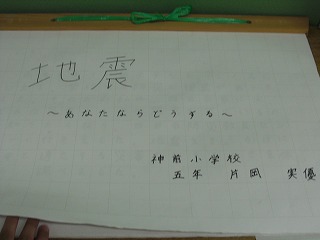 地震
～あなたならどうする～
神前小学校
五年 片岡 実優